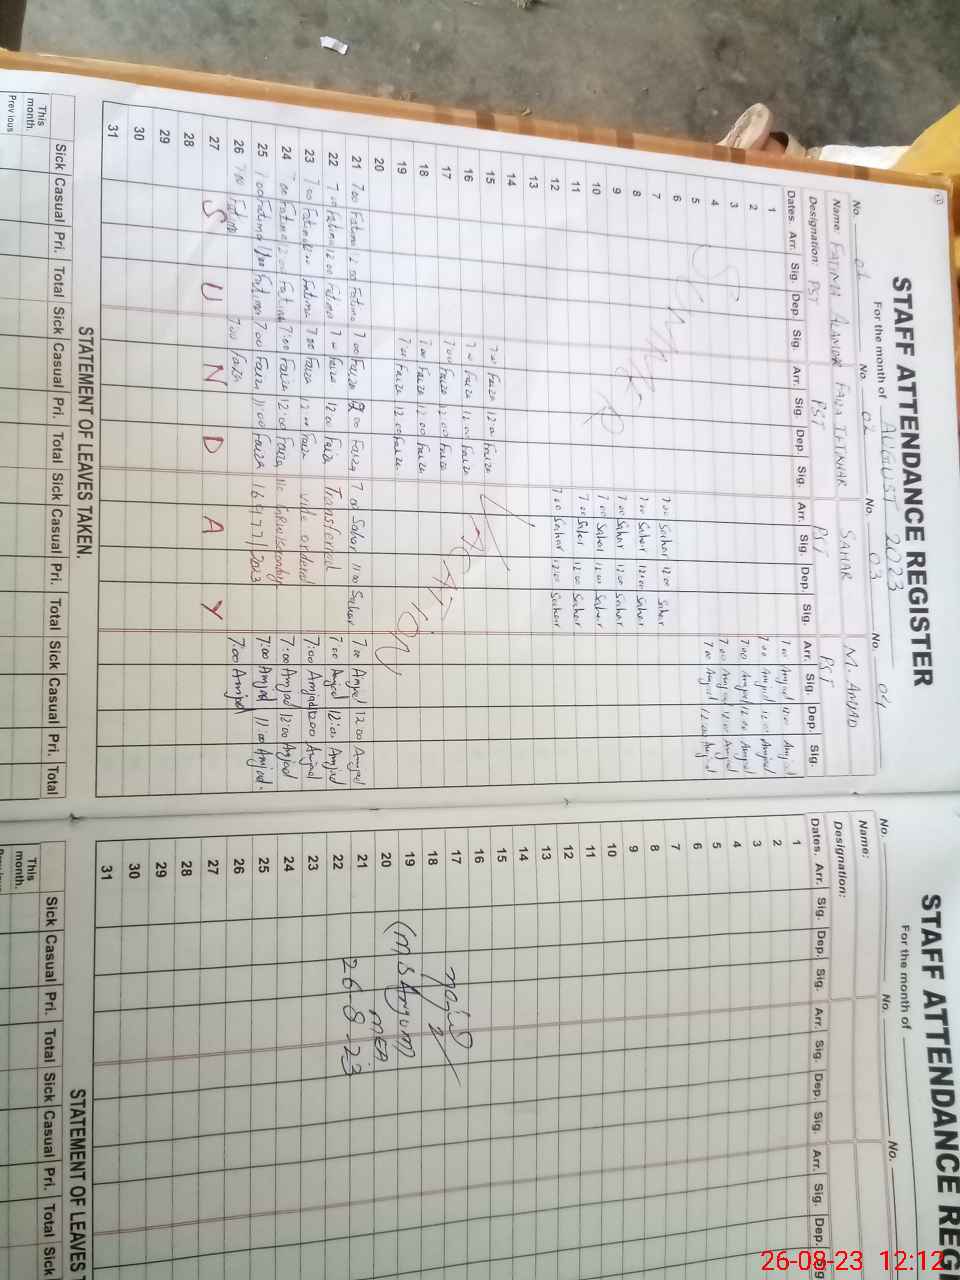 STAFF ATTENDANCE REGISTER
For the month of AUGUST 2023
No. 01 No. 02 No. 03 No. 04
Name: FATIMA ALAMDAR FAIZA IFTIKHAR SAHAR M. AMJAD
Designation: PST PST PST PST
Dates. Arr. Sig. Dep. Sig. Arr. Sig. Dep. Sig. Arr. Sig. Dep. Sig. Arr. Sig. Dep. Sig.
1 7:00 Amjad 12:00 Amjad
2 7:00 Amjad 12:00 Amjad
3 7:00 Amjad 12:00 Amjad
4 7:00 Amjad 12:00 Amjad
5 7:00 Amjad 12:00 Amjad
6
7 7:00 Sahar 12:00 Sahar
8 7:00 Sahar 12:00 Sahar
9 7:00 Sahar 12:00 Sahar
10 7:00 Sahar 12:00 Sahar
11 7:00 Sahar 12:00 Sahar
12 7:00 Sahar 12:00 Sahar
SUMMER
13
14
15 7:00 Faiza 12:00 Faiza
16 7:00 Faiza 12:00 Faiza
17 7:00 Faiza 12:00 Faiza
18 7:00 Faiza 12:00 Faiza
19 7:00 Faiza 12:00 Faiza
VACATION
20
21 7:00 Fatima 12:00 Fatima 7:00 Faiza 12:00 Faiza 7:00 Sahar 11:00 Sahar 7:00 Amjad 12:00 Amjad
22 7:00 Fatima 12:00 Fatima 7:00 Faiza 12:00 Faiza Transferred 7:00 Amjad 12:00 Amjad
23 7:00 Fatima 12:00 Fatima 7:00 Faiza 12:00 Faiza vide order 7:00 Amjad 12:00 Amjad
24 7:00 Fatima 12:00 Fatima 7:00 Faiza 12:00 Faiza 7:00 Amjad 12:00 Amjad
25 7:00 Fatima 11:00 Fatima 7:00 Faiza 11:00 Faiza 7:00 Amjad 11:00 Amjad
26 7:00 Fatima 7:00 Faiza 7:00 Amjad
27 SUNDAY
28
29
30
31
STATEMENT OF LEAVES TAKEN.
Sick Casual Pri. Total Sick Casual Pri. Total Sick Casual Pri. Total Sick Casual Pri. Total
This month.
Previous
STAFF ATTENDANCE REG
For the month of
No. No. No.
Name:
Designation:
Dates. Arr. Sig. Dep. Sig. Arr. Sig. Dep. Sig. Arr. Sig. Dep. Sig
1
2
3
4
5
6
7
8
9
10
11
12
13
14
15
16
17
18
19
20
21
22
23
24
25
26
27
28
29
30
31
MEA
26-8-23
STATEMENT OF LEAVES T
Sick Casual Pri. Total Sick Casual Pri. Total Sick
This month.
26-08-23 12:12